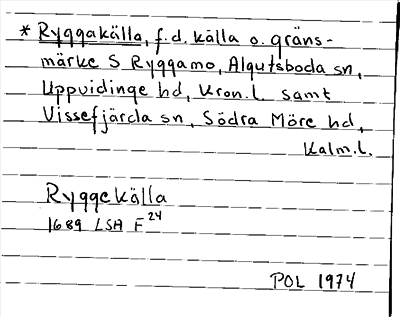 * Ryggakälla, f.d. källa o. gräns-
märke S Ryggamo, Algutsboda sn,
Uppvidinge hd, Kron.l. samt
Vissefjärda sn, Södra Möre hd,
Kalm.l.
Ryggekälla
1689 LSA F24
POL 1974